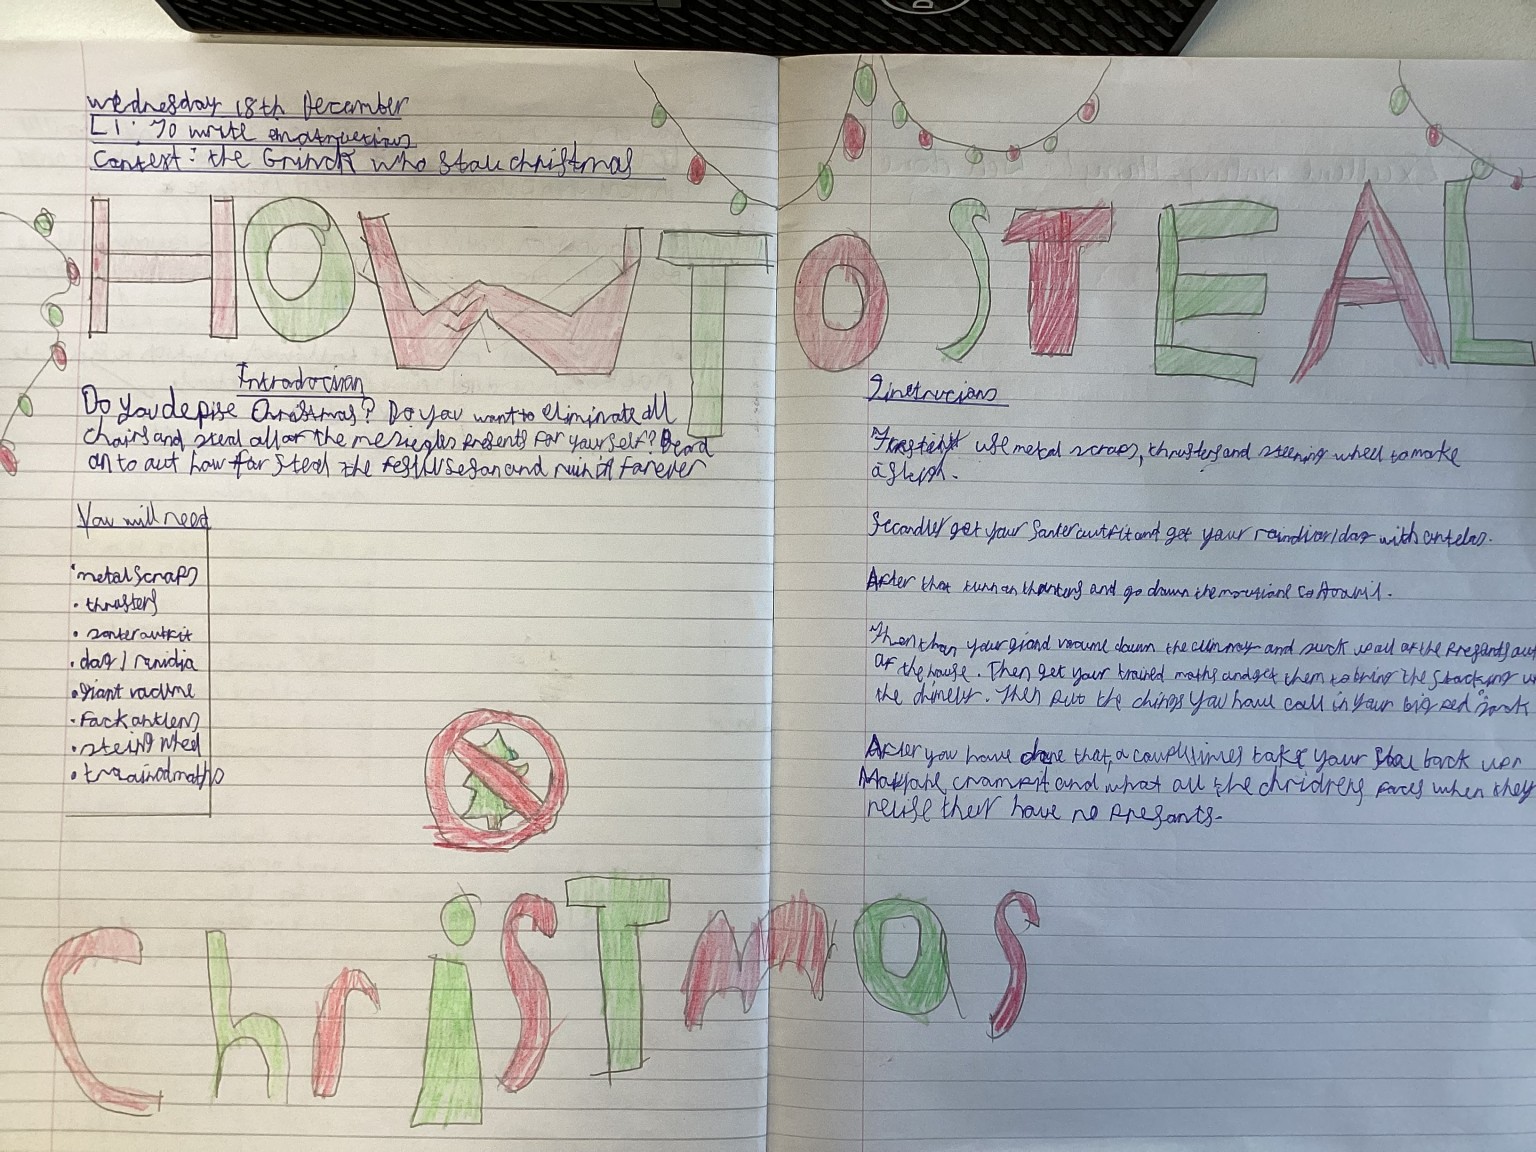 Wednesday 18th December
LI: To write instructions
Context: the Grinch who stole christmas
HOW TO STEAL
Introducian
Do you depise Christmas? Do you want to eliminate all
chairs and steal all of the presents for yourself? Read
on to out how for steal the and ruin it forever
You will need
• metal scraps
• thrusters
• santer outfit
• dog / renidia
• giant vacume
• Fack antlers
• steing wheel
• trained moths
Instrucians
use metal scraps, thrusters and steering wheel to make
a sleph.
Secondly get your Santer outfit and get your raindior/dog with antelas.
After that turn on thrusters and go down the mountians to
Then than your giand vacume down the chimney and suck up all of the presants out
of the house. Then get your trained moths and get them to bring the stocking up
the chimely. Then put the things you have call in your big red sack
After you have done that, a coupll times take your back up
crampit and what all the chridrens faces when they
relise their have no presants.
Christmas